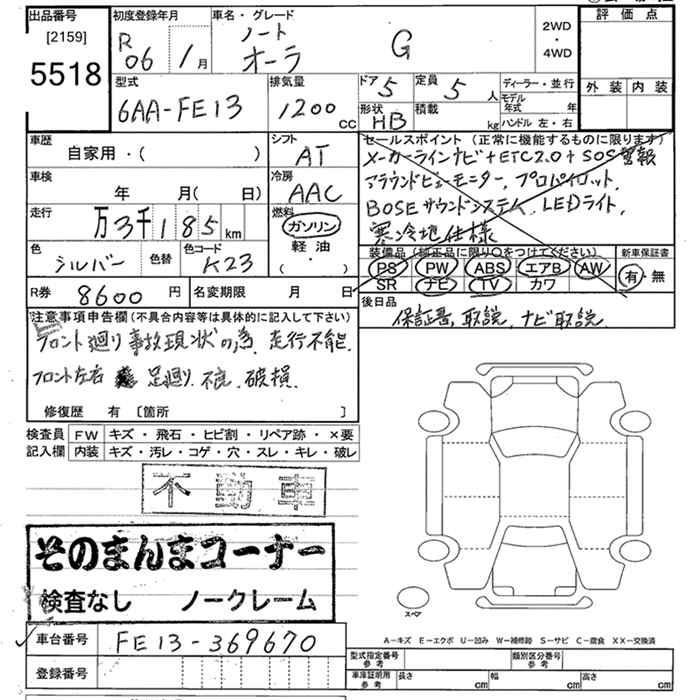 出品番号
[2159]
5518
初度登録年月
R 06 1月
車名・グレード
ノート
オーラ G
2WD
・
4WD
評価点
外装 内装
型式
6AA-FE13
排気量
1200 cc
ドア 5
定員 5人
形状 HB
積載 kg
ディーラー・並行
モデル年式 年
ハンドル 左・右
車歴
自家用・( )
シフト
AT
車検
年 月( 日)
冷房
AAC
走行
万3千185km
燃料
ガソリン
軽油
・( )
色
シルバー
色替
色コード
K23
R券 8600円
名変期限 月 日
セールスポイント(正常に機能するものに限ります)
メーカーラインナビ+ETC2.0+SOS警報
アラウンドビューモニター,プロパイロット,
BOSEサウンドシステム,LEDライト,
寒冷地仕様
装備品(純正品に限り○をつけてください)
PS PW ABS エアB AW
SR ナビ TV カワ
新車保証書
有・無
後日品
保証書,取説,ナビ取説
注意事項申告欄(不具合内容等は具体的に記入して下さい)
フロント廻り事故現状の為,走行不能.
フロント左右 足廻り.
破損
修復歴 有 [箇所 ]
検査員記入欄
FW キズ・飛石・ヒビ割・リペア跡・×要
内装 キズ・汚レ・コゲ・穴・スレ・キレ・破レ
不動車
そのまんまコーナー
検査なし ノークレーム
スペア
A-キズ E-エクボ U-凹み W-補修跡 S-サビ C-腐食 XX-交換済
車台番号 FE13-369670
登録番号
型式指定番号 参考
類別区分番号 参考
車庫証明用 参考
長さ cm 幅 cm 高さ cm